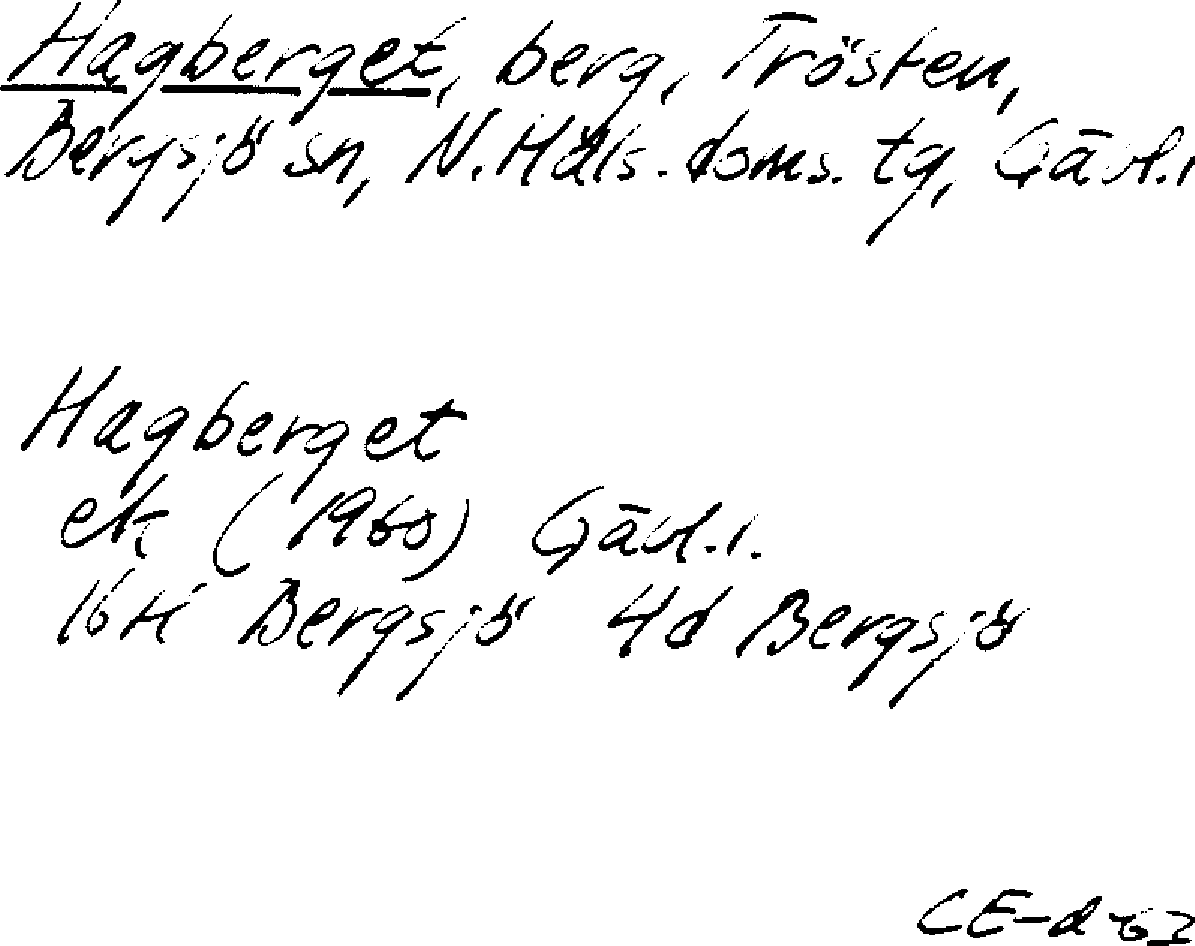 Hagberget, berg, Trösten,
Bergsjö sn, N. Häls. doms. tg, Gävl. l
Hagberget
ek (1960) Gävl. l.
16H Bergsjö 4d Bergsjö
CE-d -63